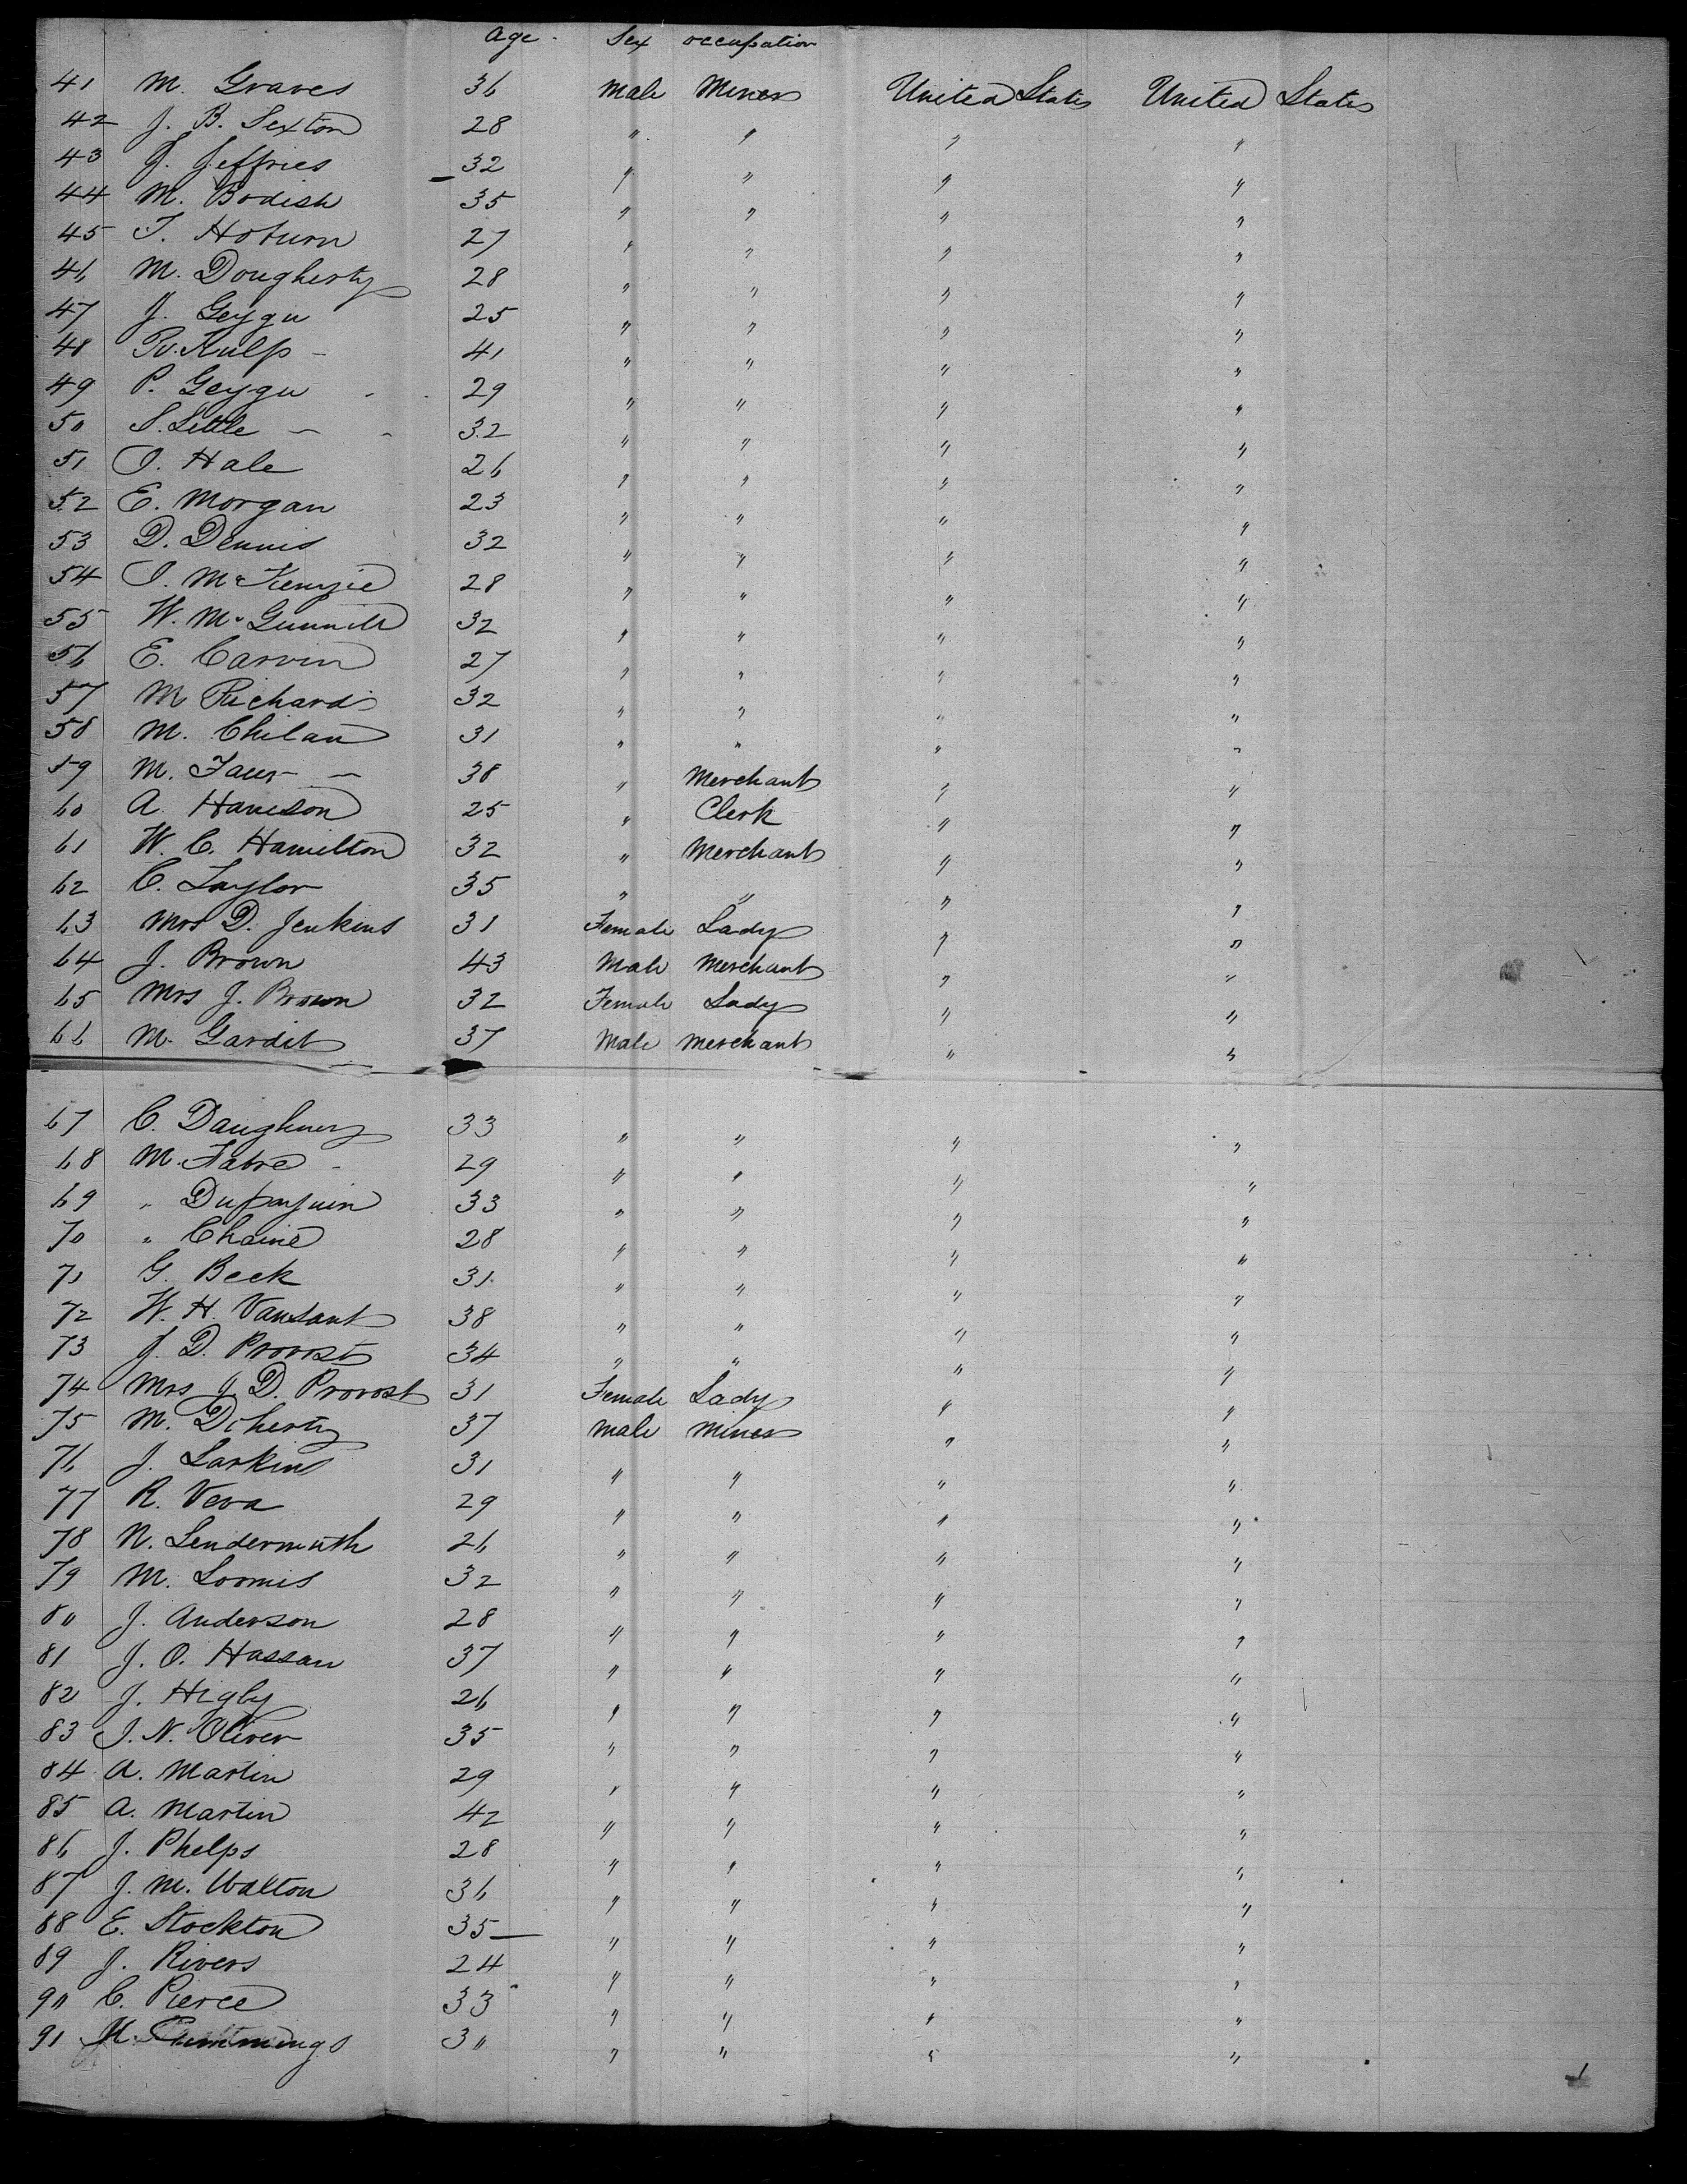 Age Sex occupation
41 M. Graves 36 Male Miner United States United States
42 J. B. Sexton 28 " " " "
43 J. Jeffries 32 " " " "
44 M. Bodish 35 " " " "
45 T. Hoturn 27 " " " "
46 M. Dougherty 28 " " " "
47 J. Geygu 25 " " " "
48 Kulp 41 " " " "
49 P. Geygu 29 " " " "
50 S. Little 32 " " " "
51 O. Hale 26 " " " "
52 E. Morgan 23 " " " "
53 D. Dennis 32 " " " "
54 McKenzie 28 " " " "
55 W. 32 " " " "
56 E. Carvin 27 " " " "
57 M Richards 32 " " " "
58 M. Chilan 31 " " " "
59 M. 38 " Merchant " "
60 A. 25 " Clerk " "
61 W. C. Hamilton 32 " Merchant " "
62 C. Taylor 35 " " " "
63 Mrs D. Jenkins 31 Female Lady " "
64 J. Brown 43 Male Merchant " "
65 Mrs J. Brown 32 Female Lady " "
66 M. Gardit 37 Male Merchant " "
67 C. 33 " " " "
68 M. Fabre 29 " " " "
69 " 33 " " " "
70 " Chaine 28 " " " "
71 G. Beck 31 " " " "
72 W. H. Vansant 38 " " " "
73 J. D. Provost 34 " " " "
74 Mrs J. D. Provost 31 Female Lady " "
75 M. Doherty 37 Male Miner " "
76 J. Larkins 31 " " " "
77 R. Vera 29 " " " "
78 N. Lendermuth 26 " " " "
79 M. Loomis 32 " " " "
80 J. Anderson 28 " " " "
81 J. O. Hassan 37 " " " "
82 J. Higby 26 " " " "
83 J. N. Oliver 35 " " " "
84 A. Martin 29 " " " "
85 A. Martin 42 " " " "
86 J. Phelps 28 " " " "
87 J. M. Walton 36 " " " "
88 E. Stockton 35 " " " "
89 J. Rivers 24 " " " "
90 C. Pierce 33 " " " "
91 M. Cummings 30 " " " "